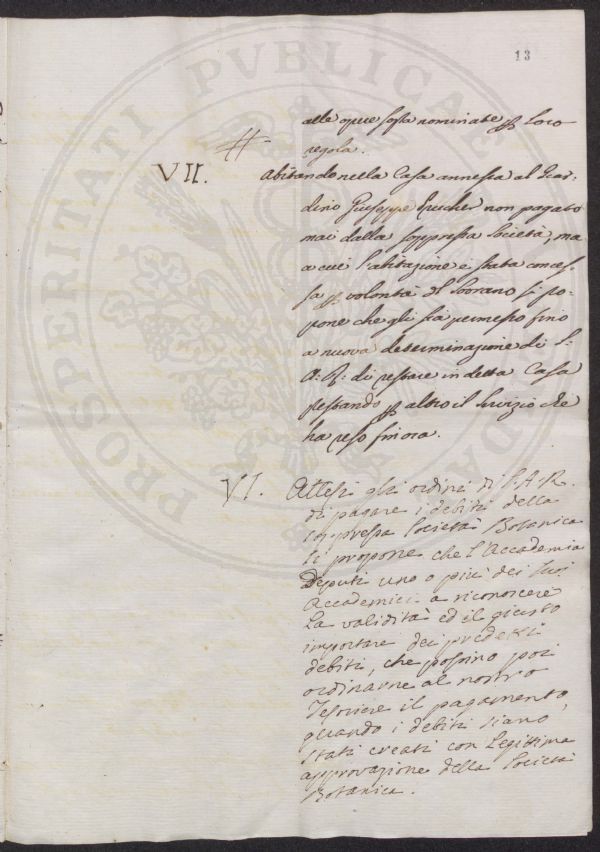 13
alle opere sopra nominate loro
regola.
#
VII. Abitando nella Casa annessa al Giar-
dino Giuseppe non pagato
mai dalla soppressa Società, ma
a cui l'abitazione è stata conces-
sa volontà del Sovrano si pro-
pone che gli sia permesso fino
a nuova determinazione di S.
A. R. di restare in detta Casa
prestando altro il Servizio che
ha reso finora.
VI. Attesi gli ordini di S.A.R.
di pagare i debiti della
soppressa Società Botanica
si propone che l'Accademia
Deputi uno o più dei suoi
Accademici a riconoscere
la validità ed il giusto
importare dei predetti
debiti, che possino poi
ordinarne al nostro
Tesoriere il pagamento,
quando i debiti siano
stati creati con legittima
approvazione della Società
Botanica.
PROSPERITATI PVBLICAE